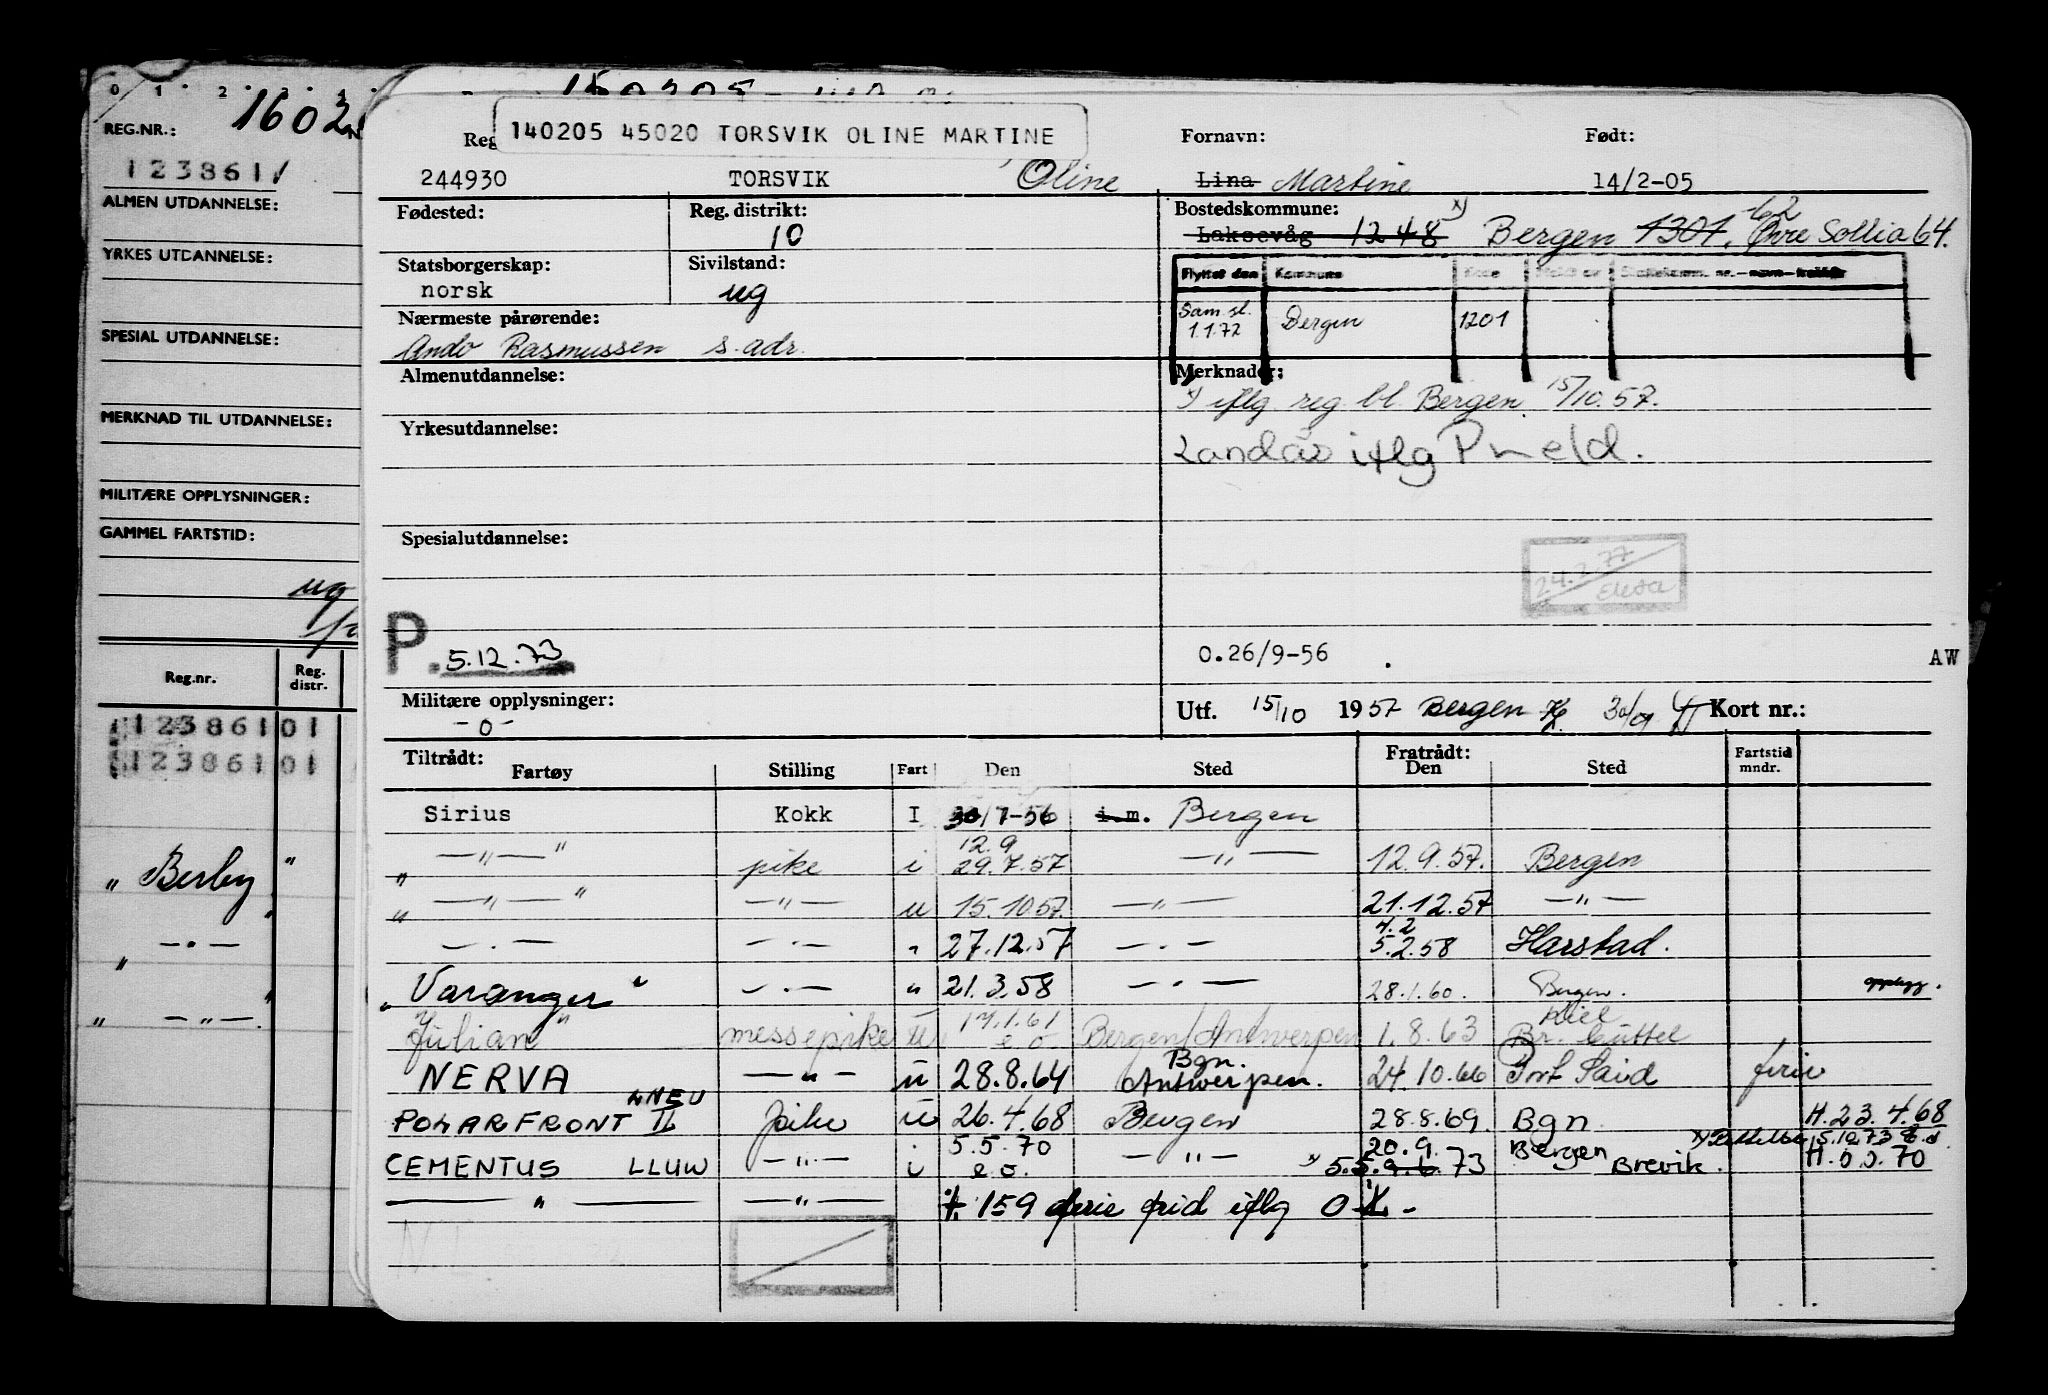 0 1 2
1602
REG.NR.:
123861
ALMEN UTDANNELSE:
YRKES UTDANNELSE:
SPESIAL UTDANNELSE:
MERKNAD TIL UTDANNELSE:
MILITÆRE OPPLYSNINGER:
GAMMEL FARTSTID:
ug
Reg.nr. Reg. distr.
123861 01
123861 01
" Berby "
" — " —
" — " —.
150205
140205 45020 TORSVIK OLINE MARTINE
Reg Fornavn: Født:
244930 TORSVIK Oline Lina Martine 14/2-05
Fødested: Reg. distrikt: Bostedskommune: x)
10 Laksevåg 1248 Bergen 1301. Øvre Sollia 62 64.
Statsborgerskap: Sivilstand: Flyttet den Kommune
norsk ug
Nærmeste pårørende: Sam.sl. 1.1.72 Bergen 1201
Ando Rasmussen s. adr.
Almenutdannelse: Merknader:
x) iflg reg. bl. Bergen 15/10.57.
Yrkesutdannelse:
Landås iflg P meld.
Spesialutdannelse:
24.2.77
P. 5.12.73 0.26/9-56 AW
Militære opplysninger:
-0- Utf. 15/10 1957 Bergen Kort nr.:
Tiltrådt: Fratrådt:
Fartøy Stilling Fart Den Sted Den Sted Fartstid mndr.
Sirius Kokk I 30/7-56 i.m. Bergen
" — " — " pike i 12.9 29.7.57 — " — 12.9.57. Bergen
" — " — " — " — u 15.10.57 — " — 21.12.57 — " —
— " — — " — " 27.12.57 — " — 4.2 5.2.58 Harstad.
" Varanger " — " — " 21.3.58 — " — 28.1.60. Bergen. opplagg.
Julian " messepike u 17.1.61 e.o. Bergen/Antwerpen 1.8.63 Kiel Br. Cuttel
NERVA — " — u 28.8.64 Bgn. Antwerpen. 24.10.66 Port Said ferie
POLARFRONT II LNEU pike u 26.4.68 Bergen 28.8.69. Bgn. H.23.4.68
CEMENTUS LLUW — " — i 5.5.70 e.o. — " — x) 20.9. 5.5.9.6.73 Bergen Brevik. 5.12.73
— " — — " — ÷ 159 ferie frid iflg